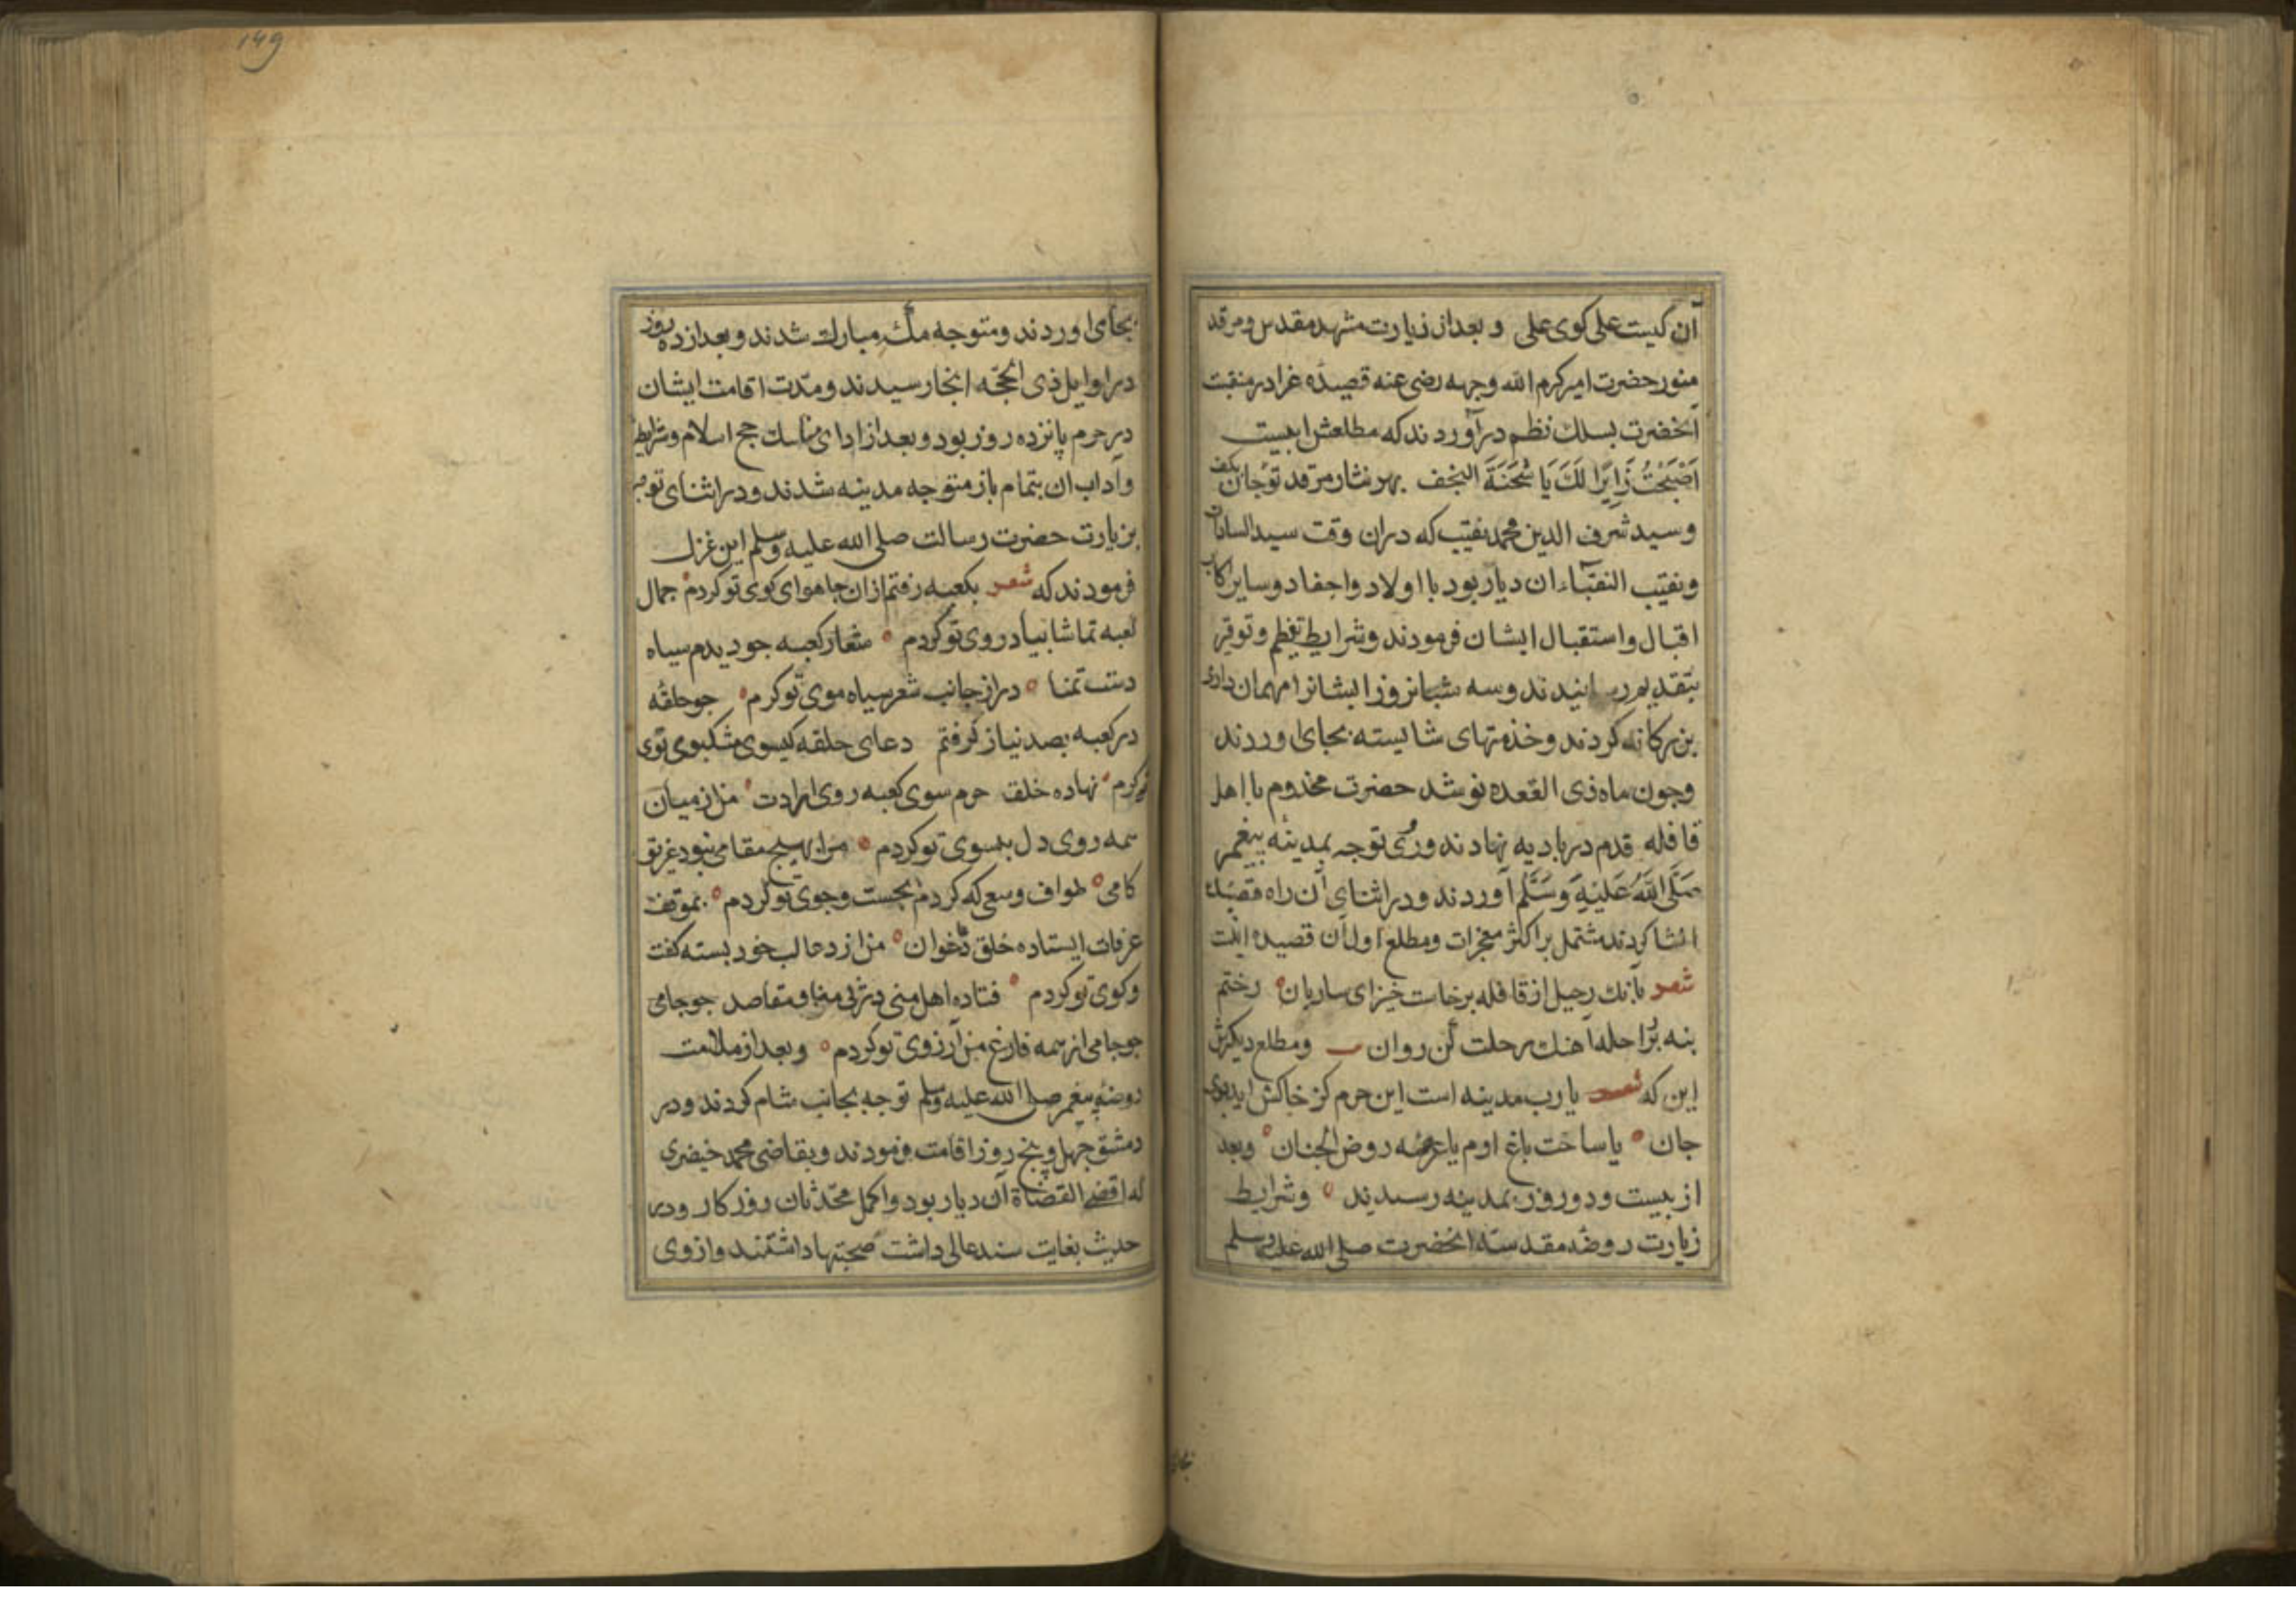 آن کیست علی کوی علی و بعد از زیارت مشهد مقدس و مرقد
منور حضرت امیر کرم الله وجهه رضی عنه قصیدهٔ غرا در منقبت
آنحضرت بسلک نظم درآوردند که مطلعش اینست
اَصْبَحْتُ زَایِرًا لَکَ یَا شَحْنَةَ النجف بهر نثار مرقد تو جان بکف
و سید شرف الدین محمد نقیب که دران وقت سید السادات
و نقیب النقبآء ان دیار بود با اولاد و احفاد و سایر اکابر
اقبال و استقبال ایشان فرمودند و شرایط تعظیم و توقیر
بتقدیم رسانیدند و سه شبانروز ایشانرا مهمان داری
بزرکانه کردند و خذمتهای شایسته بجای اوردند
و جون ماه ذی القعده نو شد حضرت مخدوم با اهل
قافله قدم در بادیه نهادند و روی توجه بمدینه پیغمبر
صَلَّی اللَّهُ عَلَیْهِ وَسَلَّم آوردند و در اثنای آن راه قصیده
انشا کردند مشتمل بر اکثر معجزات و مطلع اول آن قصیده اینست
شعر بانک رحیل از قافله برخاست خیز ای ساربان رختم
بنه بر راحله آهنک رحلت کن روان و مطلع دیکرش
این که شعر یا رب مدینه است این حرم کز خاکش اید بوی
جان یا ساحت باغ ارم یا عرصه روض الجنان و بعد
از بیست و دو روز بمدینه رسیدند و شرایط
زیارت روضه مقدسه انحضرت صلی الله علیه وسلم
بجای
149
بجای اوردند و متوجه مکهٔ مبارک شدند و بعد از ده روز
در اوایل ذی الحجّه انجا رسیدند و مدّت اقامت ایشان
در حرم پانزده روز بود و بعد از ادای مناسک حج اسلام و شرایط
و آداب ان بتمام باز متوجه مدینه شدند و در اثنای توجه
بزیارت حضرت رسالت صلی الله علیه وسلم این غزل
فرمودند که شعر بکعبه رفتم ازان جا هوای کوی تو کردم جمال
کعبه تماشا بیاد روی تو کردم شعار کعبه جو دیدم سیاه
دست تمنا دراز جانب شعر سیاه موی تو کرم جو حلقه
در کعبه بصد نیاز کرفتم دعای حلقه کیسوی مشکبوی توی
کرم نهاده خلق حرم سوی کعبه روی ارادت من از میان
همه روی دل بسوی تو کردم مرا بهیج مقامی نبود غیر تو
کامی طواف و سعی که کردم بجست و جوی تو کردم بموقف
عرفات ایستاده خلق دعاخوان من از دعا لب خود بسته کفت
و کوی تو کردم فتاده اهل منی در پی منا و مقاصد جو جامی
جو جامی از همه فارغ من آرزوی تو کردم و بعد از ملازمت
روضهٔ پیغمبر صلی الله علیه وسلم توجه بجانب شام کردند و در
دمشق جهل و پنج روز اقامت فرمودند و بقاضی محمد خیضری
که اقضی القضاة آن دیار بود و اکمل محدّثان روزکار و در
حدیث بغایت سند عالی داشت صحبتها داشتند و از وی